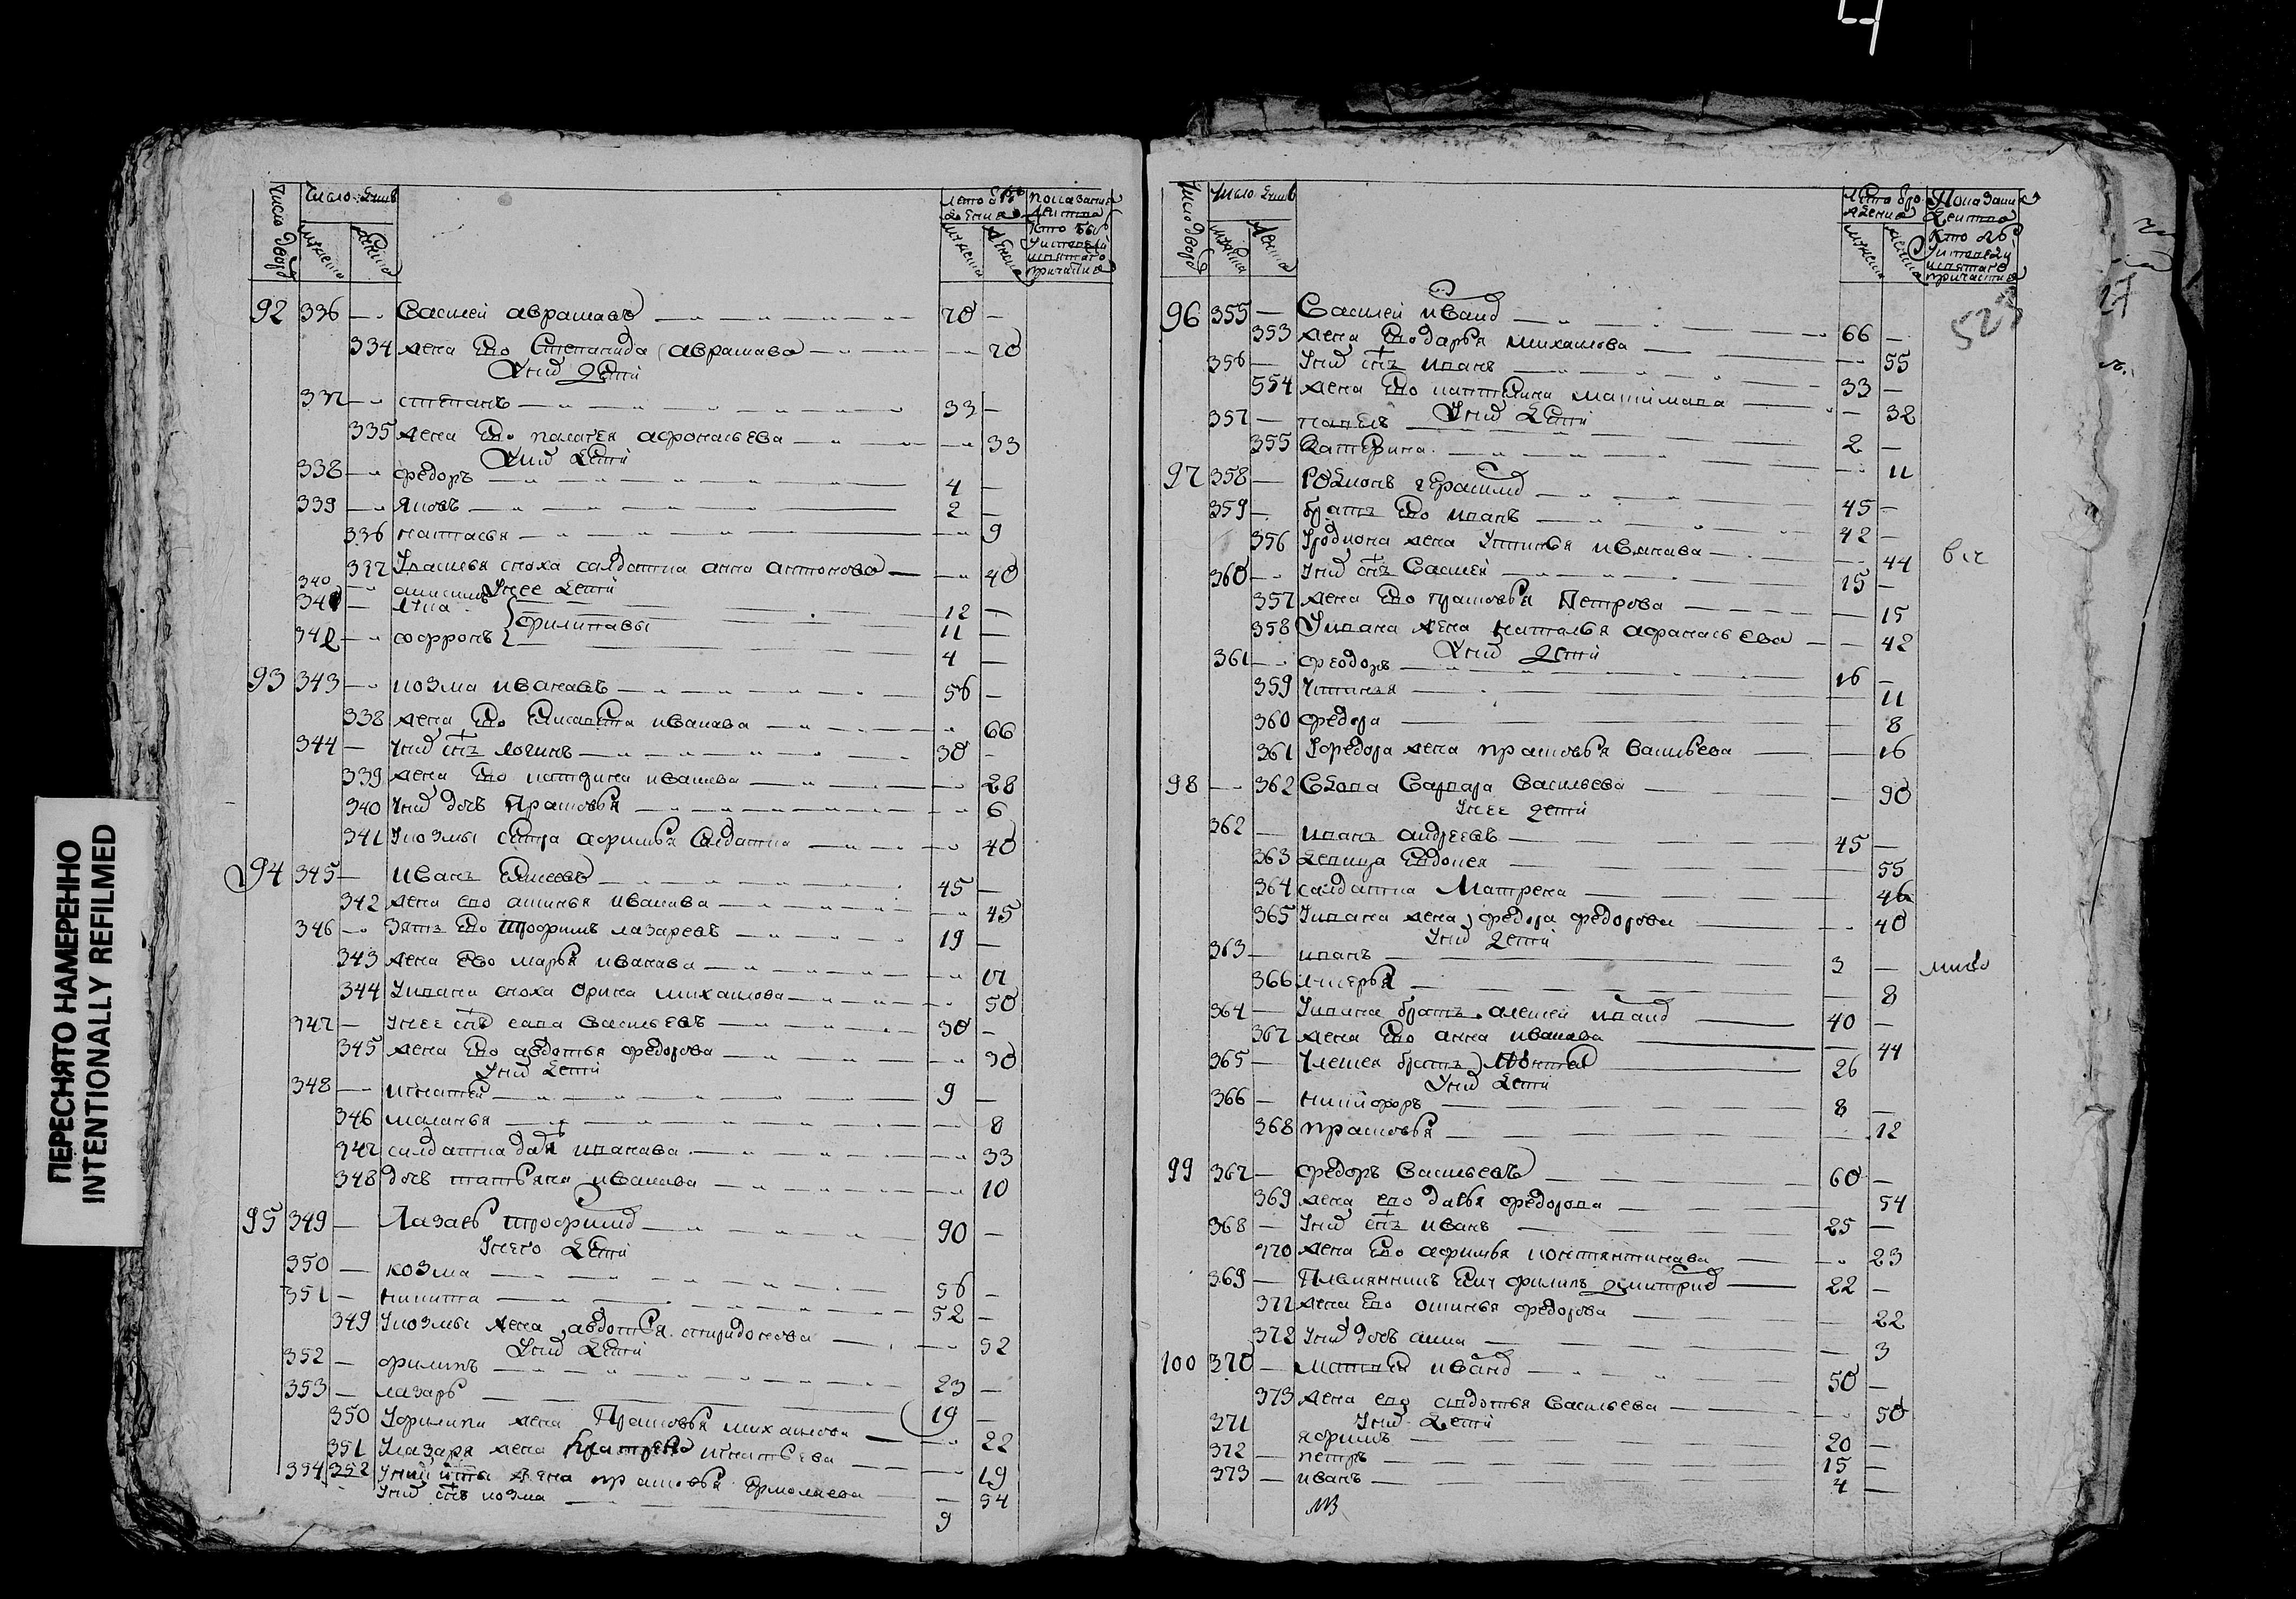 ПЕРЕСНЯТО НАМЕРЕННО
INTENTIONALLY REFILMED
число дворо число душъ
мужеска женска
лето отро ждения показание
мужеска женска
92 336 Василей аврамавъ 70
334 жена ево Степанида аврамава 70
У них дети
337 степанъ 33
335 жена ево палагея афонасьева 33
У них дети
338 федоръ 4
339 яковъ 2
336 настасья 9
337 У василья сноха салдатка анна антонова 40
340 анисимъ У нее дети 12
341 лука филипавы 11
342 софронъ 4
93 343 козма иванавъ 56
338 жена ево Елисавета иванава 66
344 У них снъ логинъ 30
339 жена ево катерина иванава 28
340 У них дочь Прасковья 6
341 У козмы сестра афимья Салдатка 40
94 345 иванъ Елисеевъ 45
342 жена ево аксинья иванава 45
346 Зять ево трофимъ лазаревъ 19
343 жена ево марья иванава 17
344 У ивана сноха орина михаилова 50
347 У нее снъ сава васильевъ 30
345 жена ево авдотья федорова 30
У них дети
348 игнатей 9
346 маланья 8
347 салдатка дарья иванава 33
348 дочь татьяна иванава 10
95 349 Лазарь трофимов 90
У него дети
350 козма 56
351 никита 52
349 У козмы жена авдотья спиридонова 52
У них дети
352 филипъ 23
353 лазарь 19
350 У филипа жена Прасковья михаилова 22
351 У лазаря жена игнатьева 19
354 352 У никиты жена прасковья Ермолаева 54
У них снъ козма 9
число дворо число душъ
мужеска женска
мужеска женска
523
96 355 Василей иванов 66
353 жена ево дарья михаилова 55
356 У них снъ иванъ 33
554 жена ево катерина 32
357 павелъ У них дети 2
355 Катерина 11
97 358 Родионъ герасимов 45
359 братъ ево иванъ 42
356 У родиона жена устинья иванава 44
360 У них снъ Василей 15
357 жена ево прасковья Петрова 15
358 У ивана жена наталья афанасьева 42
У них дети
361 феодоръ 16
359 устинья 11
360 федора 8
361 У федора жена прасковья васильева 16
98 362 вдова Варвара Васильева 90
У нее дети
362 иванъ андреевъ 45
363 девица Евдокея 55
364 салдатка Матрена 46
365 У ивана жена федора федорова 40
У них дети
363 иванъ 3
366 лукерья 8
364 У ивана братъ алексей иванов 40
367 жена ево анна иванава 44
365 У алексея братъ 26
У них дети
366 никифоръ 8
368 прасковья 12
99 367 федоръ Васильевъ 60
369 жена ево дарья федорова 54
368 У них снъ иванъ 25
370 жена ево афимья костянтинава 23
369 Племянникъ филипъ дмитриев 22
371 жена ево аксинья федорова 22
372 У них дочь анна 3
100 370 матвей иванов 50
373 жена ево авдотья Васильева 50
У них дети
371 ефимъ 20
372 петръ 15
373 иванъ 4